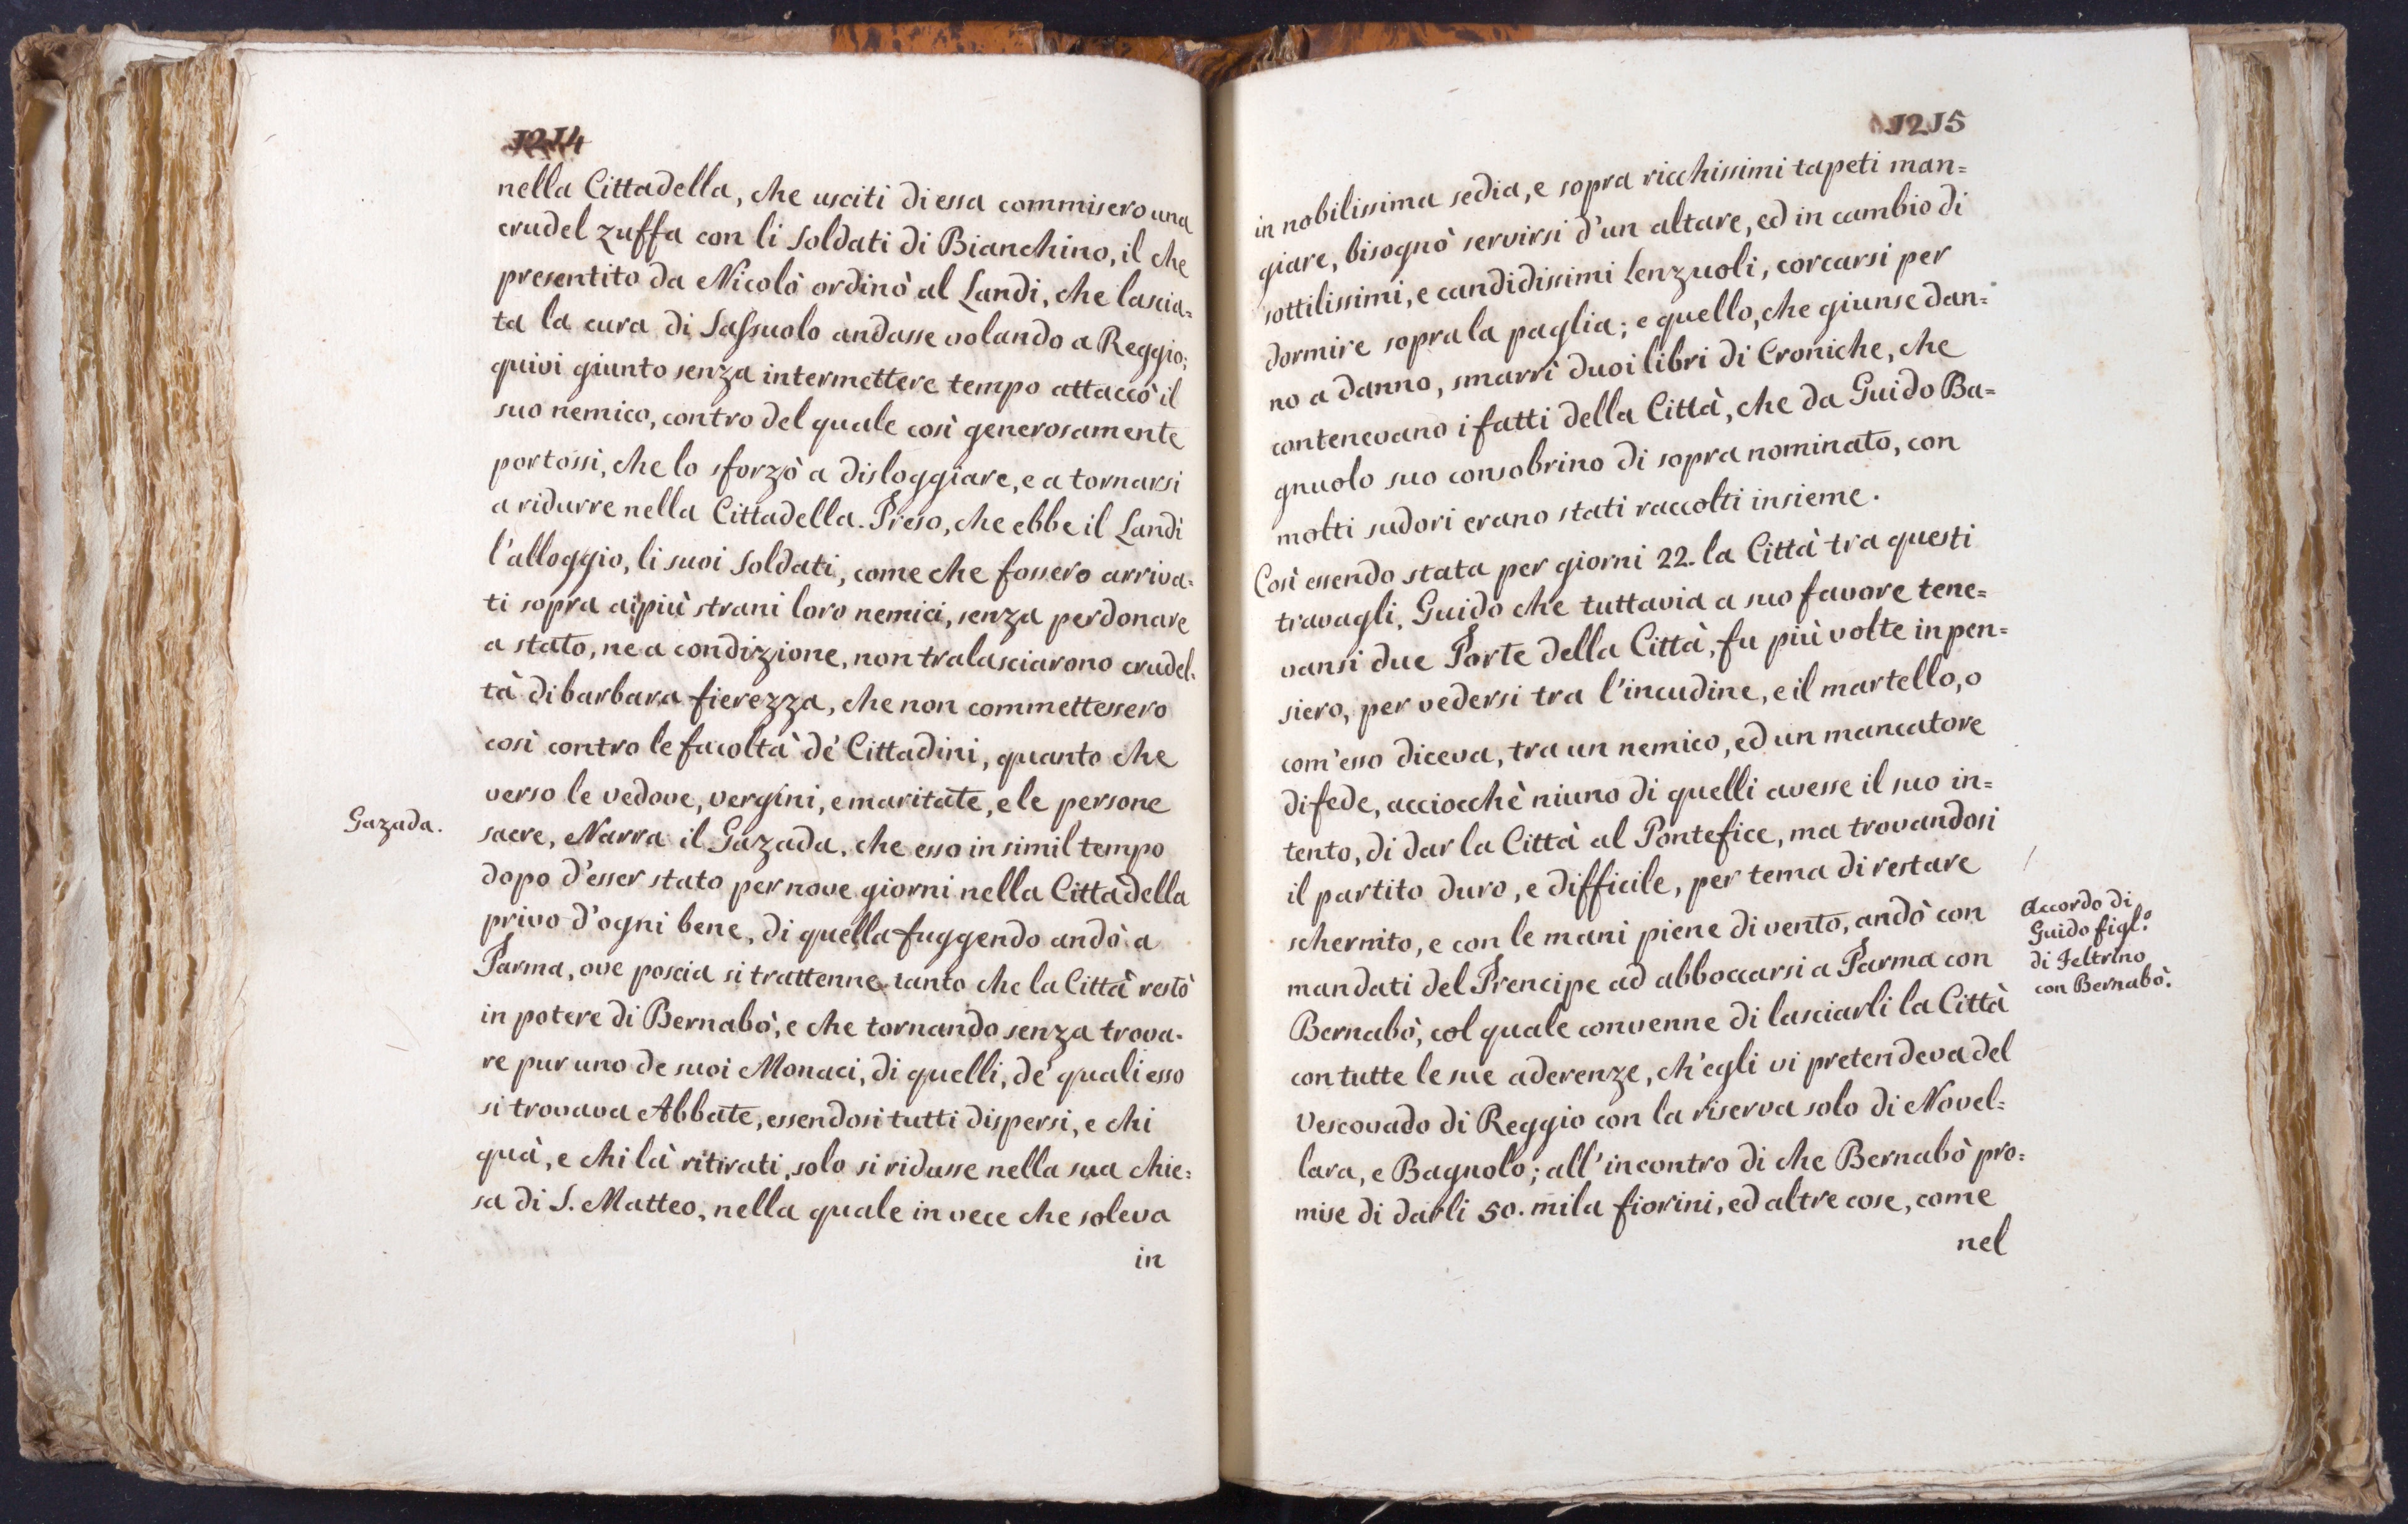 1214
nella Cittadella, che usciti di essa commisero una
crudel zuffa con li Soldati di Bianchino, il che
presentito da Nicolò ordinò al Landi, che lascia=
ta la cura di Sassuolo andasse volando a Reggio;
quivi giunto senza intermettere tempo attaccò il
suo nemico, contro del quale così generosamente
portossi, che lo sforzò a disloggiare, e a tornarsi
a ridurre nella Cittadella. Preso, che ebbe il Landi
l'alloggio, li suoi Soldati, come che fossero arriva=
ti sopra ai più strani loro nemici, senza perdonare
a stato, ne a condizione, non tralasciarono crudel=
tà di barbara fierezza, che non commettessero
così contro le facoltà de' Cittadini, quanto che
verso le vedove, vergini, e maritate, e le persone
Gazada.
sacre, Narra il Gazada, che esso in simil tempo
dopo d'esser stato per nove giorni nella Cittadella
privo d'ogni bene, di quella fuggendo andò a
Parma, ove poscia si trattenne tanto che la Città restò
in potere di Bernabò, e che tornando senza trova=
re pur uno de suoi Monaci, di quelli, de' quali esso
si trovava Abbate, essendosi tutti dispersi, e chi
quà, e chi là ritirati, solo si ridusse nella sua chie=
sa di S. Matteo, nella quale in vece che soleva
in
1215
in nobilissima sedia, e sopra ricchissimi tapeti man=
giare, bisognò servirsi d'un altare, ed in cambio di
sottilissimi, e candidissimi Lenzuoli, corcarsi per
dormire sopra la paglia; e quello, che giunse dan=
no a danno, smarrì duoi libri di Croniche, che
contenevano i fatti della Città, che da Guido Ba=
gnuolo suo consobrino di sopra nominato, con
molti sudori erano stati raccolti insieme.
Così essendo stata per giorni 22. la Città tra questi
travagli, Guido che tuttavia a suo favore tene=
vansi due Porte della Città, fu più volte in pen=
siero, per vedersi tra l'incudine, e il martello, o
com'esso diceva, tra un nemico, ed un mancatore
di fede, acciocchè niuno di quelli avesse il suo in=
tento, di dar la Città al Pontefice, ma trovandosi
il partito duro, e difficile, per tema di restare
schernito, e con le mani piene di vento, andò con
mandati del Prencipe ad abboccarsi a Parma con
Bernabò, col quale convenne di lasciarli la Città
con tutte le sue aderenze, ch'egli vi pretendeva del
Vescovado di Reggio con la riserva solo di Novel=
lara, e Bagnolo; all'incontro di che Bernabò pro=
mise di darli 50. mila fiorini, ed altre cose, come
nel
Accordo di
Guido figl.º
di Feltrino
con Bernabò.